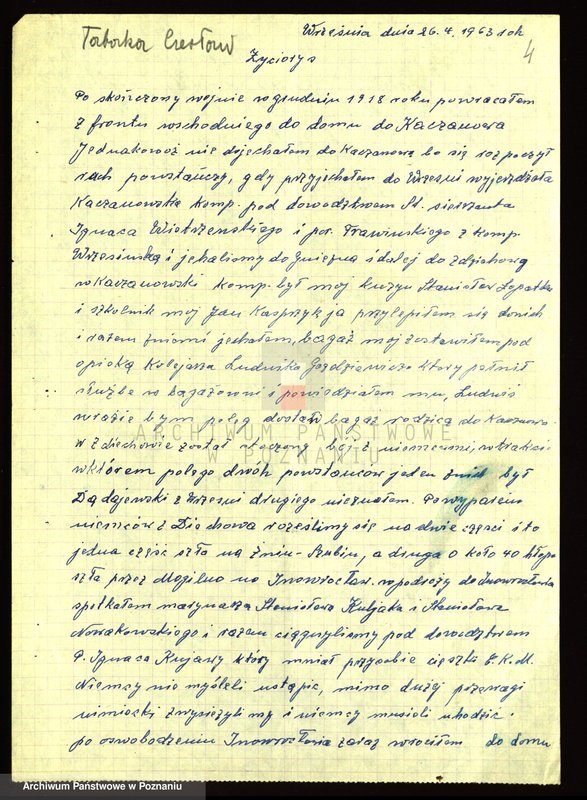 Taborka Czesław
Września dnia 26.4.1963 rok
4
Życiorys
Po skończony wojnie w grudniu 1918 roku powracałem
z frontu wschodniego do domu do Kaczanowa
Jednakowoż nie dojechałem do Kaczanowa bo się rozpoczył
ruch powstańczy, gdy przyjechałem do Wrześni wyjeżdżała
Kaczanowska komp. pod dowództwem St. sierżanta
Ignaca Wietrzenskiego i por. Trawinskiego z komp.
Wrzesinską i jehaliśmy do Gniezna i dalej do Zdziechową
w Kaczanowski komp. był moj kuzyn Stanisław Łopatka
i szkolnik moj Jan Kasprzyk ja przylepiłem się do nich
i razem z niemi jechałem, bagaż moj zostawiłem pod
opieką kolejarza Ludwika Goździewicza ktory pełnił
służbe w bagażowni i powiedziałem mu, Ludwiś
wrazie bym poległ dostaw bagaż rodziców do Kaczanowa.
W Zdiechowie został stoczony boj z niemcami, w trakcie
w ktorem polego dwóh powstańców jeden znich był
Dądajewski z Wrzesni drugiego nieznałem. Po wyparciu
niemców z Diechowa roześlimy się na dwie częsci i to
jedna część szła na Żnin-Szubin, a druga o koło 40 hłopa
szła przez Mogilno na Inowrocław. w podróży do Inowrocławia
spotkałem marynarza Stanisława Kubjaka i Stanisława
Nowakowskiego i razem ciągnyliśmy pod dowodztwem
P. Ignaca Kujawy ktory mniał przysobie cięszki C.K.M.
Niemcy nie mysleli ustąpić, mimo dużej przewagi
nimiecki zwysiężylimy i niemcy musieli uhodzić.
po oswobodzeniu Inowrocławia zaraz wrociłem do domu
ARCHIWUM PAŃSTWOWE
W POZNANIU
Archiwum Państwowe w Poznaniu